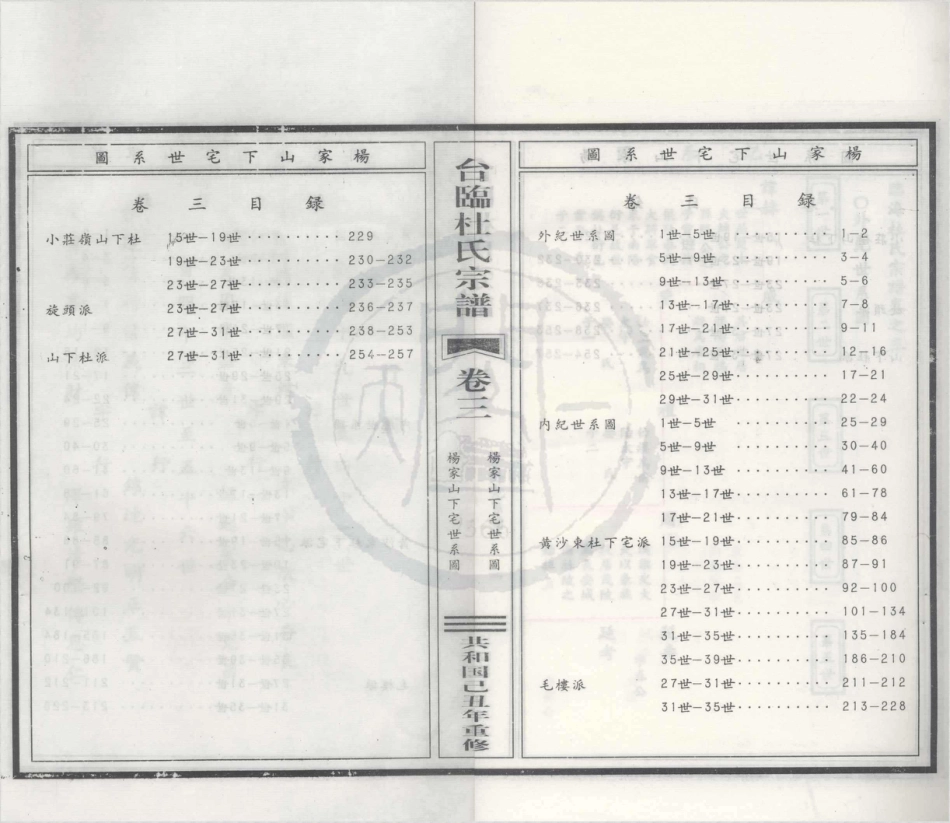 楊家山下宅世系圖
卷三目録
外紀世系圖 1世-5世·········· 1-2
5世-9世·········· 3-4
9世-13世·········· 5-6
13世-17世·········· 7-8
17世-21世·········· 9-11
21世-25世·········· 12-16
25世-29世·········· 17-21
29世-31世·········· 22-24
内紀世系圖 1世-5世 25-29
5世-9世·········· 30-40
9世-13世·········· 41-60
13世-17世·········· 61-78
17世-21世·········· 79-84
黄沙東杜下宅派 15世-19世·········· 85-86
19世-23世·········· 87-91
23世-27世·········· 92-100
27世-31世·········· 101-134
31世-35世·········· 135-184
35世-39世·········· 186-210
毛樓派 27世-31世·········· 211-212
31世-35世·········· 213-228
台臨杜氏宗譜
卷三
楊家山下宅世系圖
楊家山下宅世系圖
共和国己丑年重修
楊家山下宅世系圖
卷三目録
小莊嶺山下杜 15世-19世·········· 229
19世-23世·········· 230-232
23世-27世·········· 233-235
旋頭派 23世-27世·········· 236-237
27世-31世·········· 238-253
山下杜派 27世-31世·········· 254-257